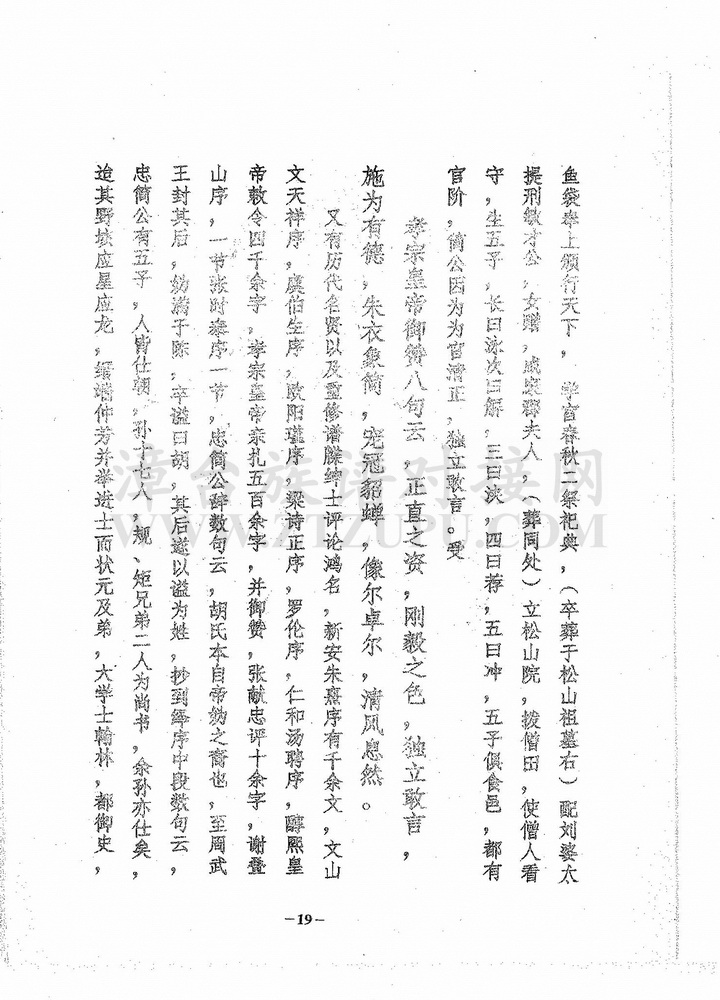 鱼袋奉上颁行天下，学宫春秋二祭祀典，（卒葬于松山祖墓右）配刘婆太
提刑敏才公，女赠，咸宁郡夫人，（葬同处）立松山院，拨僧田，使僧人看
守，生五子，长曰泳次曰解，三曰浃，四曰荐，五曰冲，五子俱食邑，都有
官阶，简公因为为官清正，独立敢言。受
孝宗皇帝御赞八句云，正直之资，刚毅之色，独立敢言，
施为有德，朱衣象简，宠冠貂蝉，像尔卓尔，清风息然。
又有历代名贤以及重修谱牒绅士评论鸿名，新安朱熹序有千余文，文山
文天祥序，虞伯生序，欧阳瑾序，梁诗正序，罗伦序，仁和汤聘序，醇熙皇
帝敕令四千余字，孝宗皇帝亲扎五百余字，并御赞，张献忠评十余字，谢叠
山序，一节张时泰序一节，忠简公辞数句云，胡氏本自帝妫之裔也，至周武
王封其后，妫满于陈，卒谥曰胡，其后遂以谥为姓，抄到绎序中段数句云，
忠简公有五子，人皆仕朝，孙十七人，规、矩兄弟二人为尚书，余孙亦仕矣，
迨其野坡应星应龙，缙端仲芳并举进士而状元及弟，大学士翰林，都御史，
-19-
漳台族谱对接网
WWW.ZTZUPU.COM